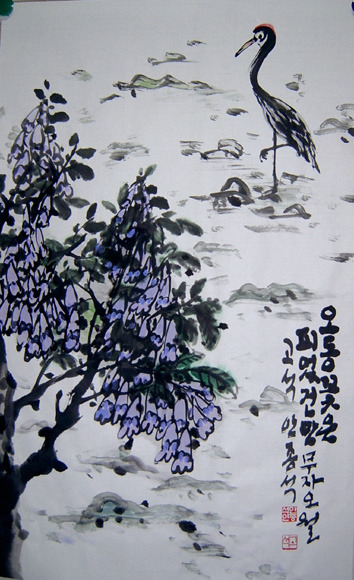 오동꽃은
피었건만
무자오월
고석 임종석